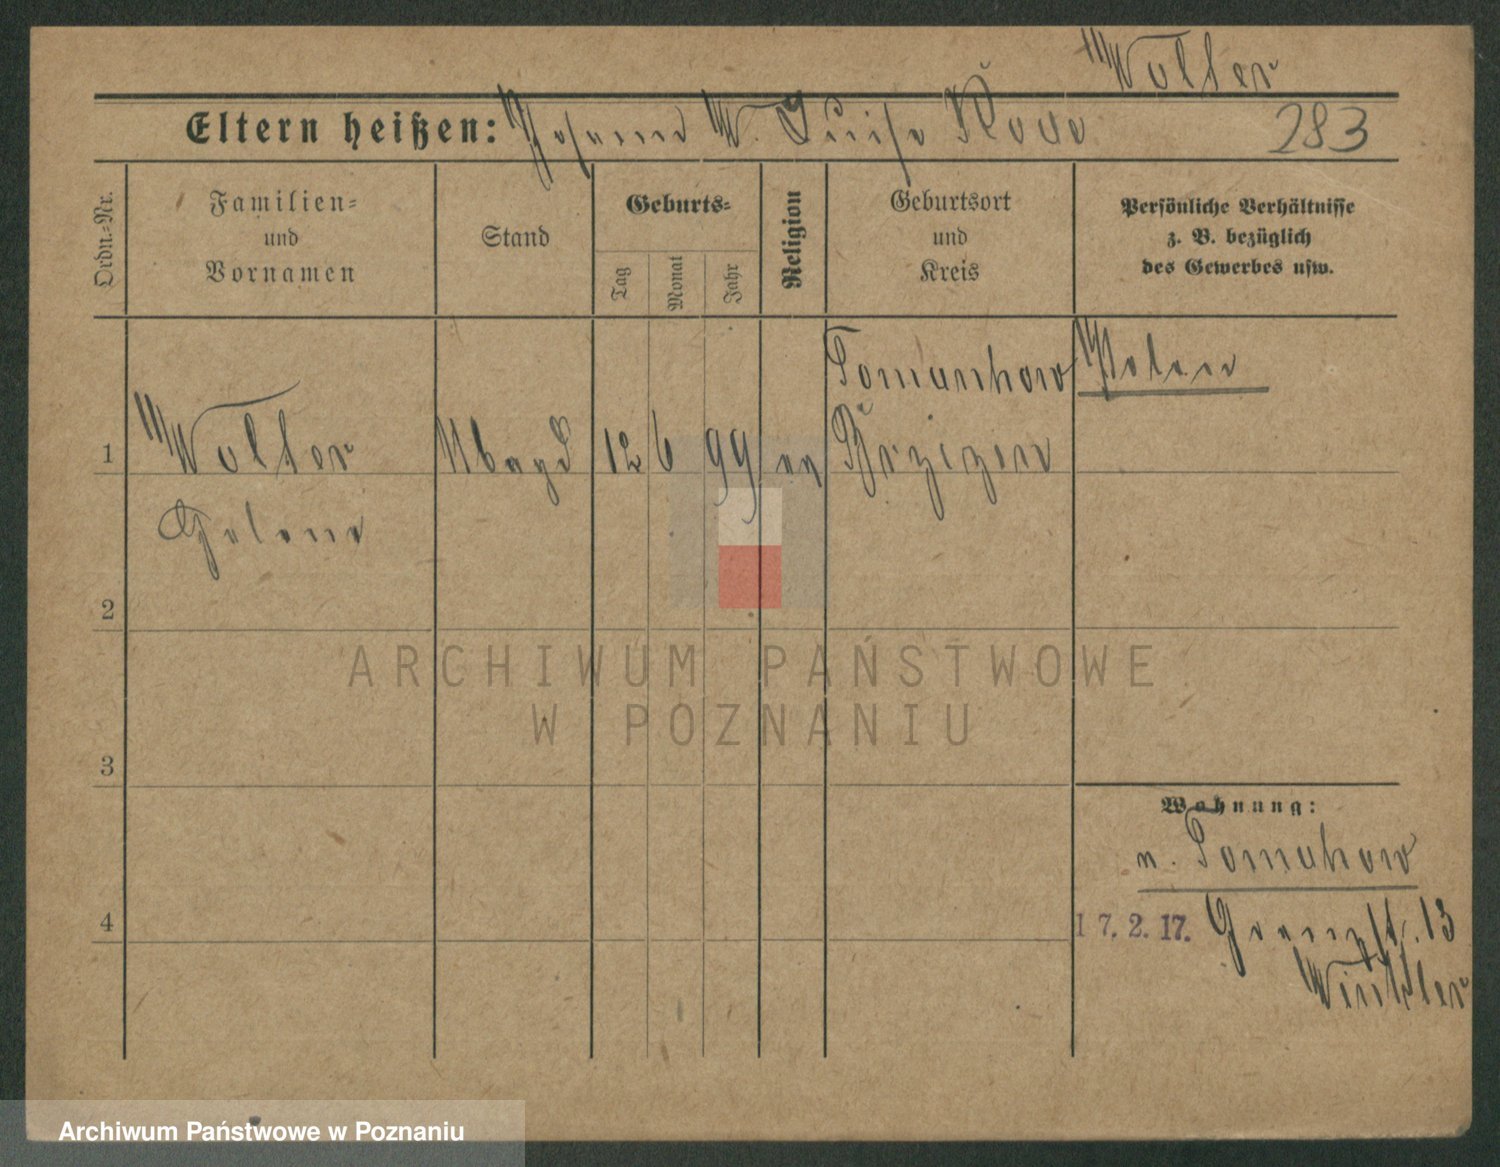 Wolter
Eltern heißen: Johann W. Luise
283
Ordn.-Nr.
Familien-
und
Vornamen
Stand
Geburts-
Tag
Monat
Jahr
Religion
Geburtsort
und
Kreis
Persönliche Verhältnisse
z. B. bezüglich
des Gewerbes usw.
Polen
1
Wolter
12 6 99
2
3
4
ARCHIWUM PAŃSTWOWE
W POZNANIU
Wohnung:
17.2.17. 13
Winkler
Archiwum Państwowe w Poznaniu